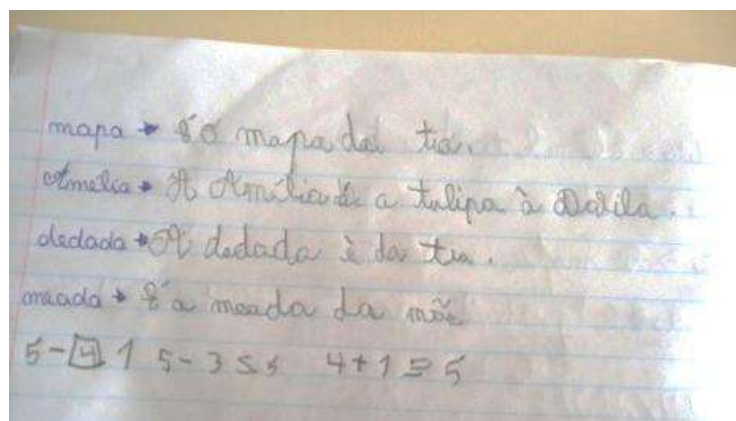 mapa → É o mapa da tia.
Amélia → A Amélia a tulipa à
dedada → A dedada è da tia.
meada → É a meada da mãe
5-4 1 5-3 4+1 5